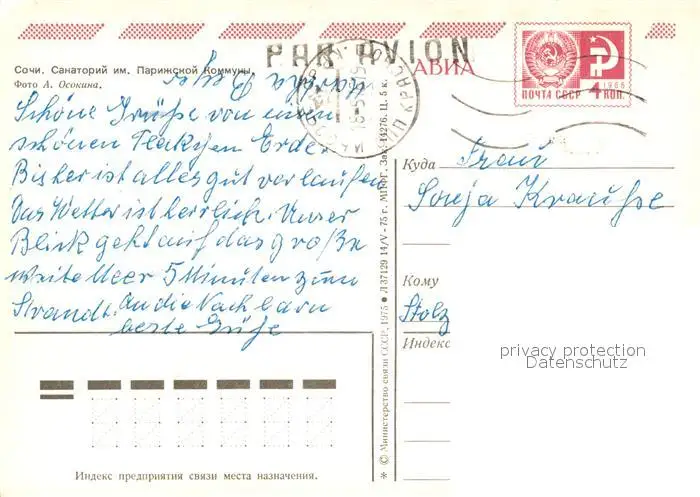 PAR AVION
АВИА
ПОЧТА СССР 4 КОП. 1966
Сочи. Санаторий им. Парижской Коммуны.
Фото А. Осокина.
Schöne Grüße von einem
schönen Fleckchen Erde.
Bisher ist alles gut verlaufen
Das Wetter ist herrlich. Unser
Blick geht auf das große
weite Meer 5 Minuten zum
Strandt. An die Nachbarn
beste Grüße
© Министерство связи СССР, 1975 ● Л 37129 14/V-75 г. МПФГ. Зак. 14276. Ц. 8 к.
Куда Frau
Sonja Krauße
Кому
Stolz
Индекс
privacy protection
Datenschutz
Индекс предприятия связи места назначения.